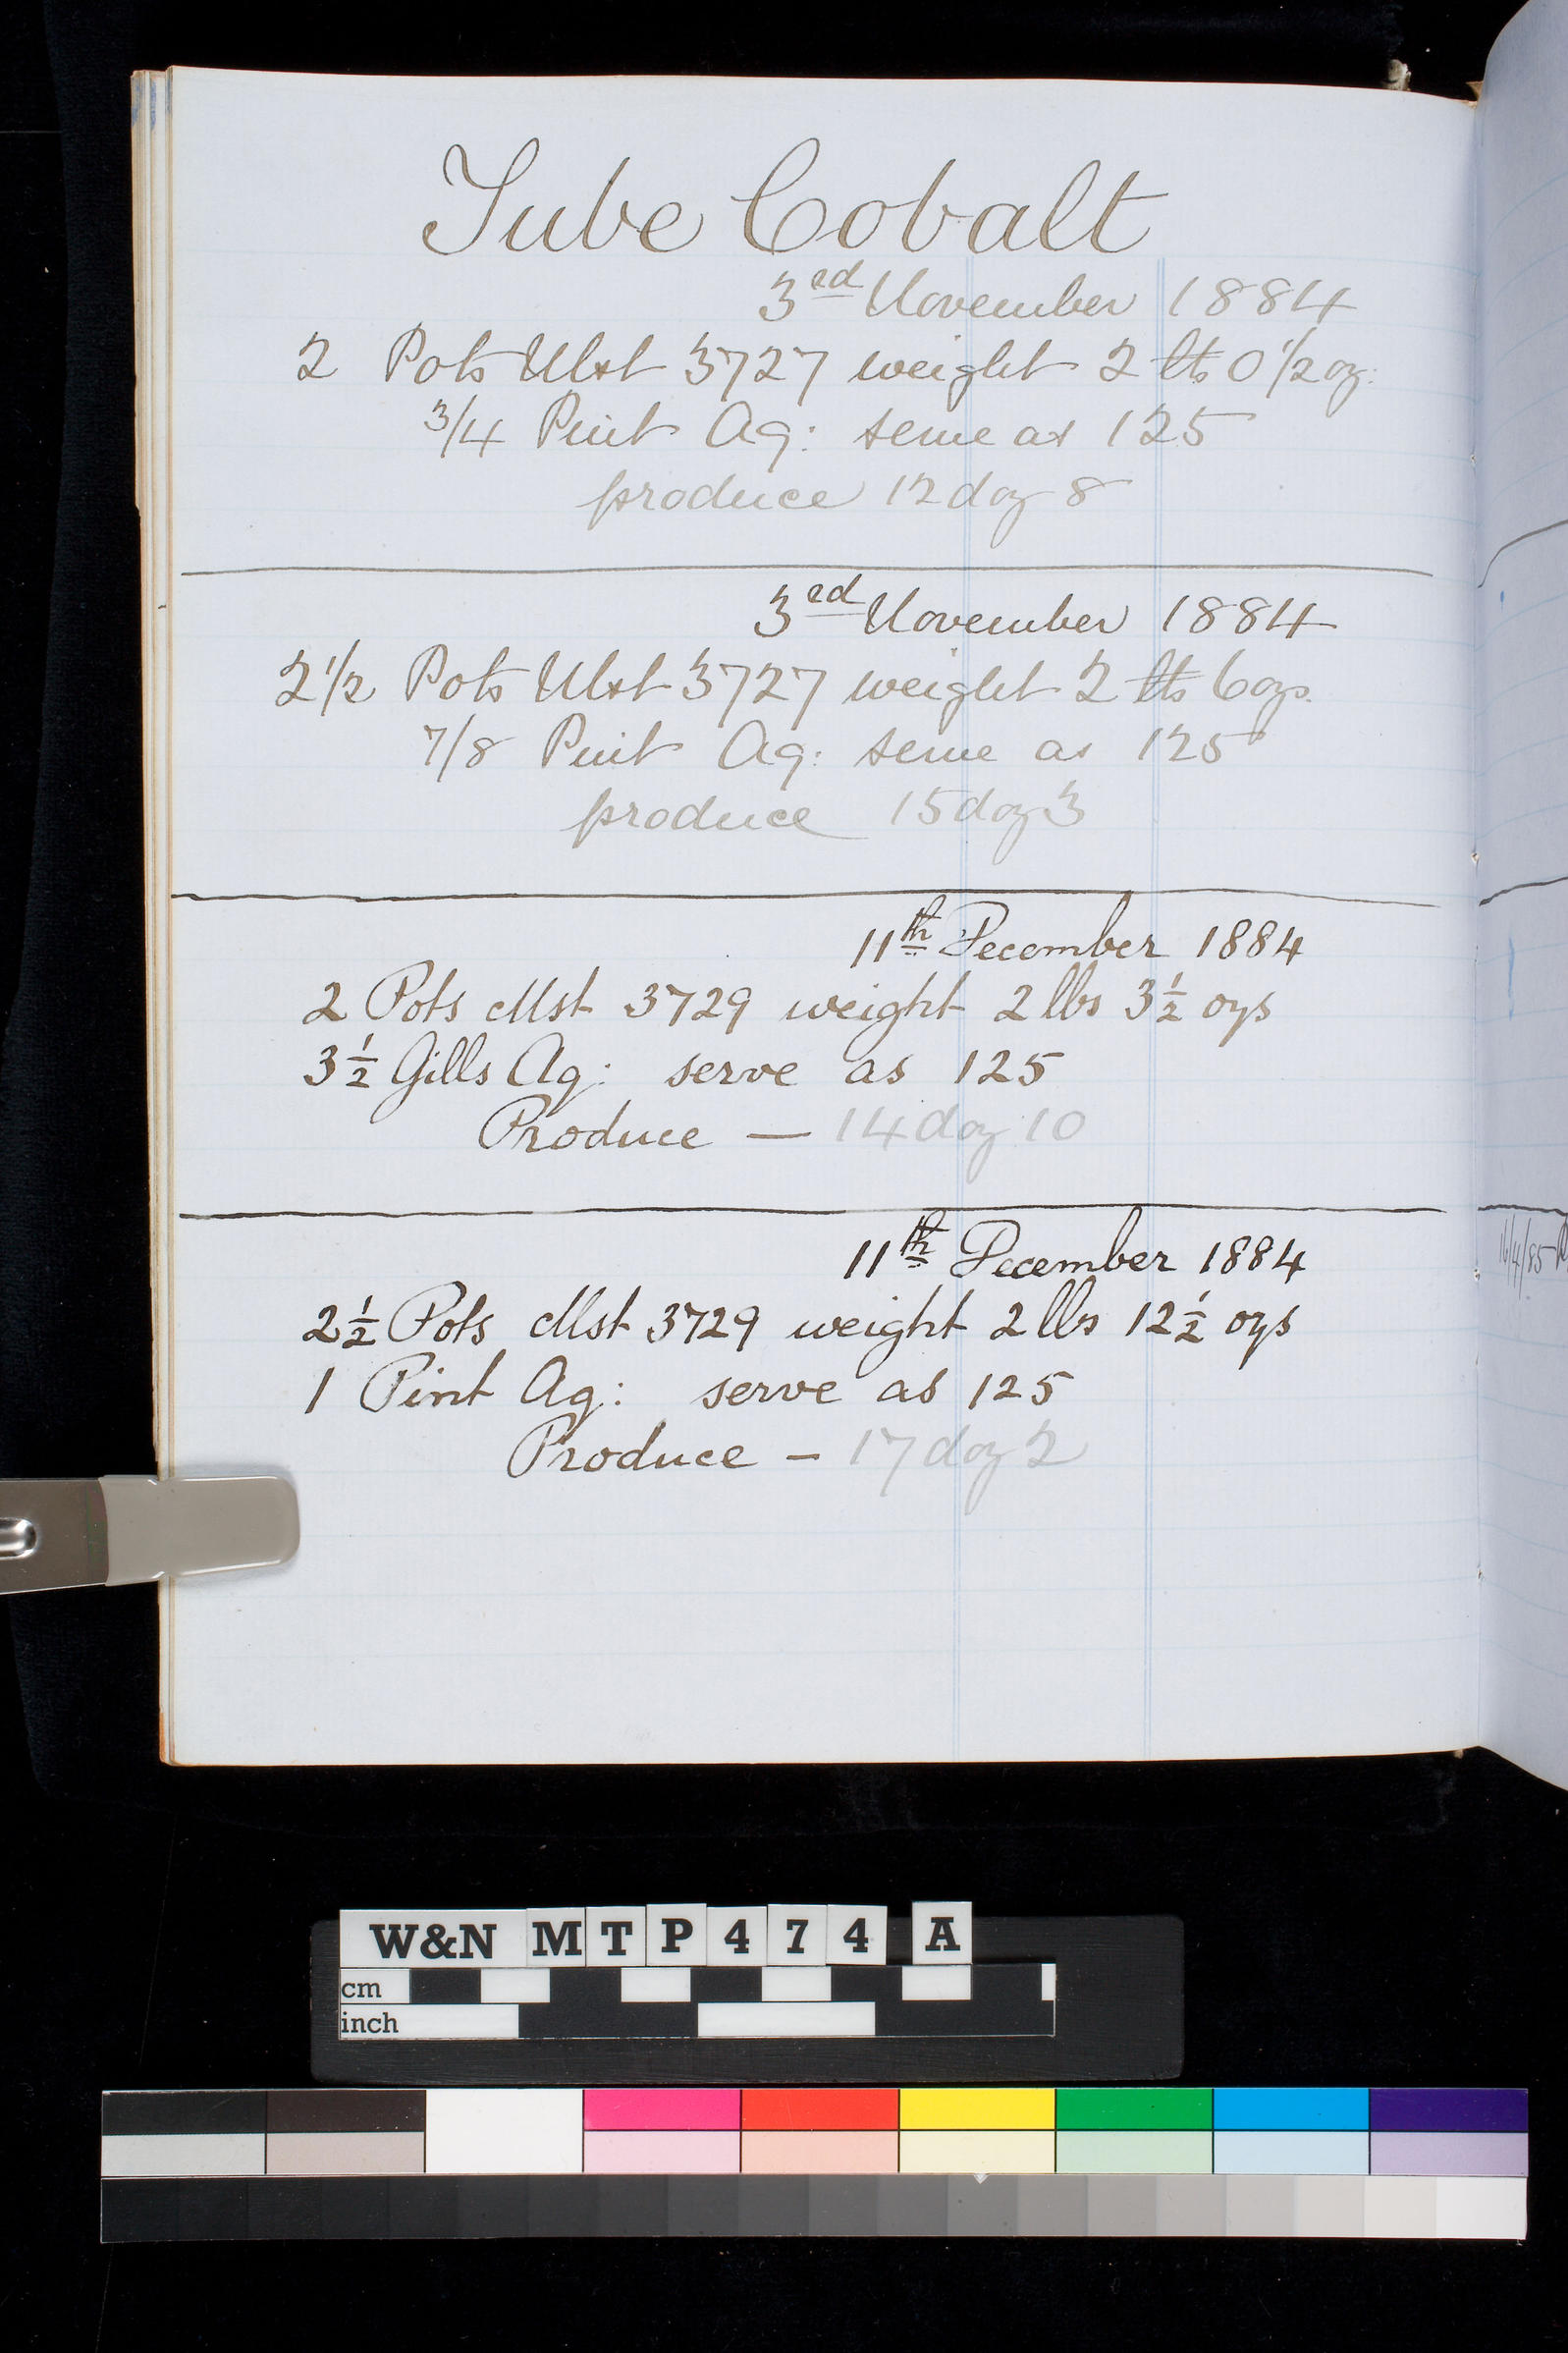 Tube Cobalt
3rd November 1884
2 Pots Ulst 3727 weight 2 lbs 0 1/2 oz:
3/4 Pint Aq: serve as 125
produce 12 doz 8
3rd November 1884
2 1/2 Pots Ulst 3727 weight 2 lbs 6 ozs.
7/8 Pint Aq: serve as 125
produce 15 doz 3
11th December 1884
2 Pots Ulst 3729 weight 2 lbs 3 1/2 ozs
3 1/2 Gills Aq: serve as 125
Produce — 14 doz 10
11th December 1884
2 1/2 Pots Ulst 3729 weight 2 lbs 12 1/2 ozs
1 Pint Aq: serve as 125
Produce – 17 doz 2
16/4/85
W&N MTP474 A
cm
inch